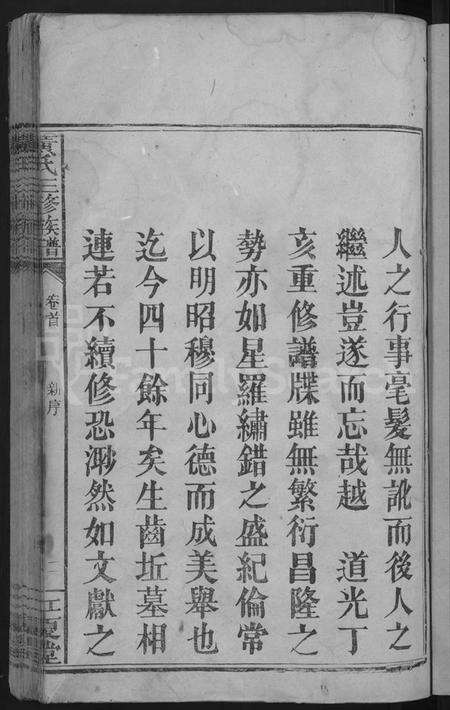 人之行事毫髮無訛而後人之
繼述豈遂而忘哉越　道光丁
亥重修譜牒雖無繁衍昌隆之
勢亦如星羅繡錯之盛紀倫常
以明昭穆同心德而成美舉也
迄今四十餘年矣生齒坵墓相
連若不續修恐渺然如文獻之
黃氏三修族譜
卷首
新序
江夏堂